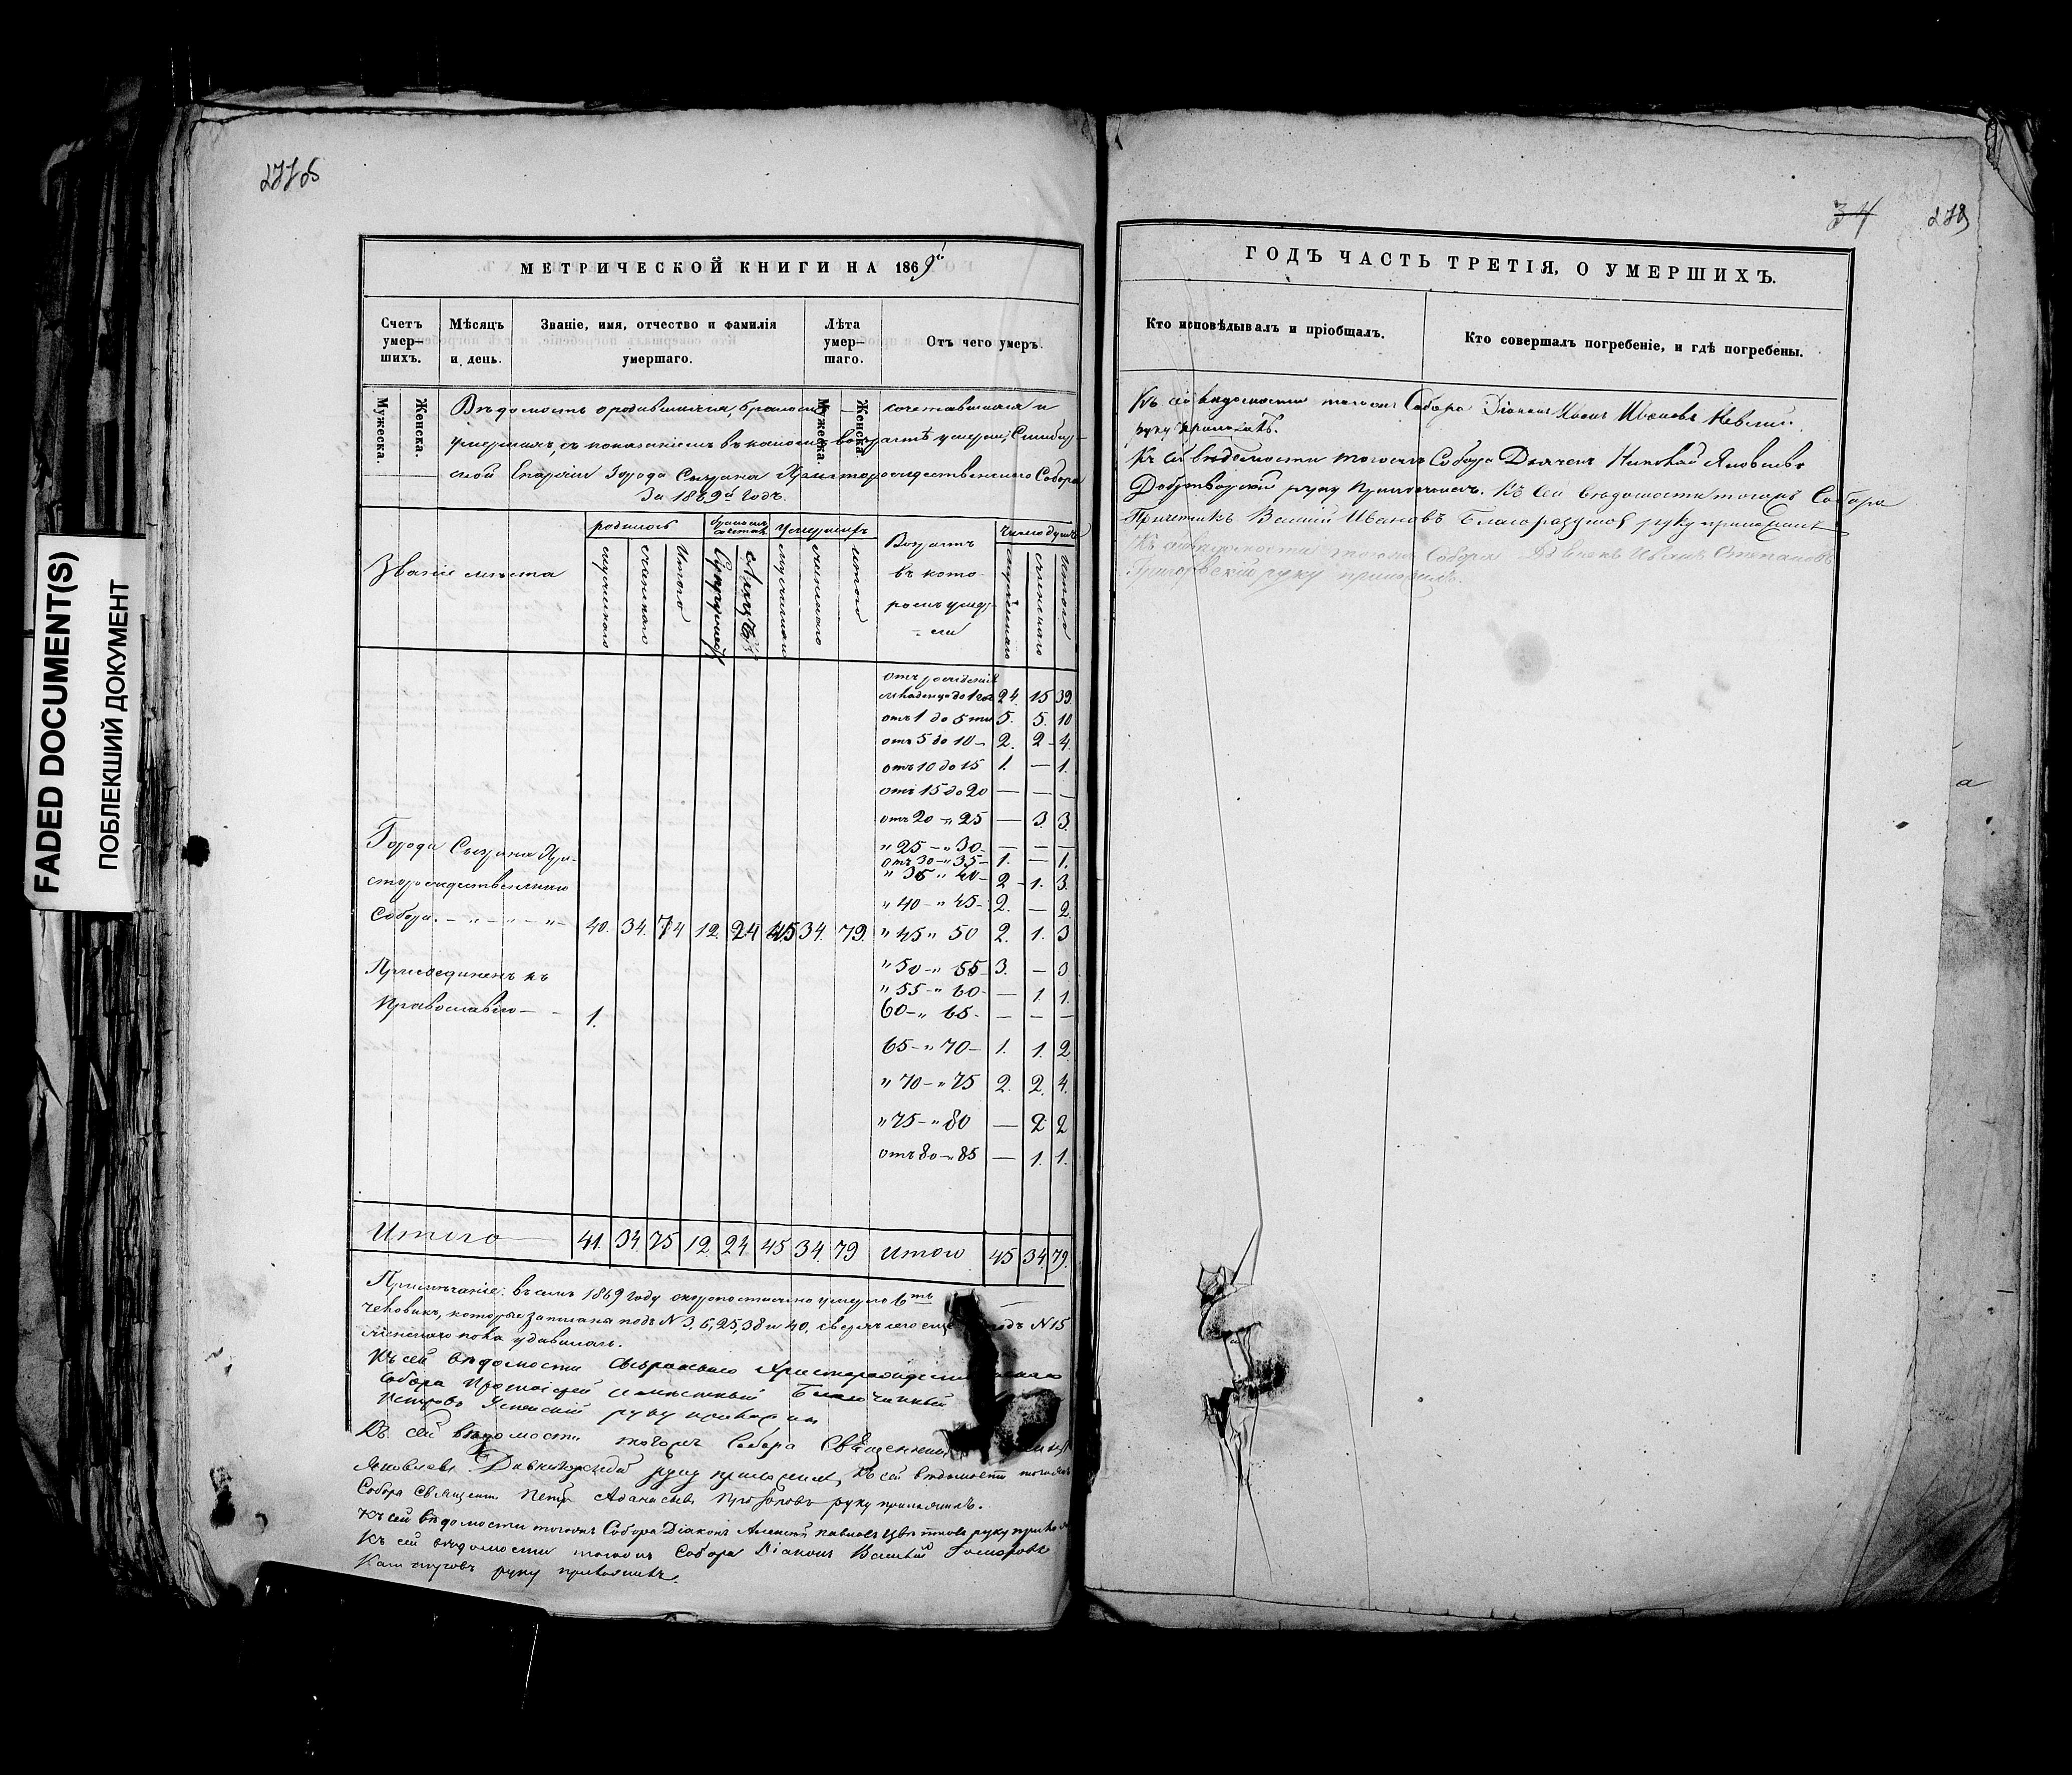 FADED DOCUMENT(S)
ПОБЛЕКШИЙ ДОКУМЕНТ
МЕТРИЧЕСКОЙ КНИГИ НА 1869й
Счетъ умер—шихъ.
Мѣсяцъ и день.
Званіе, имя, отчество и фамилія умершаго.
Лѣта умер—шаго.
Отъ чего умеръ.
Мужеска.
Женска.
Мужеска.
Женска.
Вѣдомость о родившихся, бракомъ сочетавшихся и
умершихъ, съ показаніемъ въ какомъ возрастѣ умерли, Симбир-
ской Епархіи Города Сызрана Христорождественскаго Собора
За 1869й годъ.
Званіе мѣста
родилось
бракомъ сочетал.
умершихъ
Возрастъ
въ кото-
ромъ умер-
-ли
Число душъ
мужескаго
женскаго
Итого
Супружествъ
Лицъ
мужескаго
женскаго
итого
мужескаго
женскаго
Итого
отъ рожденія
младенца до 1 год. 24. 15 39.
отъ 1 до 5 ти 5. 5. 10
отъ 5 до 10 — 2. 2 - 4.
отъ 10 до 15 1. — 1.
отъ 15 до 20 — — —
отъ 20 — " 25 — 3. 3.
" 25 — " 30 — — — —
отъ 30 — " 35 — 1. — 1.
" 35 " 40 — 2 - 1. 3.
" 40 — " 45 - 2. — 2.
Города Сызрана Хри-
сторождественскаго
Собора. — " — " — " — 40. 34. 74 12. 24 45 34. 79. " 45 " 50 2. 1. 3
" 50 — " 55 3. — 3
" 55 — " 60 - — 1. 1.
60 — " 65 - — — —
Присоединенъ къ
Православію — - 1.
65 — " 70 — 1. 1. 2
" 70 — " 75 2. 2. 4.
" 75 — " 80 — 2 2
отъ 80 — " 85 — 1. 1.
Итого 41. 34 75 12. 24. 45 34. 79 Итого 45 34. 79.
Примѣчаніе: въ семъ 1869 году скоропостижно умерло 6ть
человикъ, которые записаны подъ N 3, 6, 25, 38 и 40, сверхъ сего подъ N 15
женскаго пола удавилась.
Къ сей вѣдомости Сызранскаго Христорождественскаго
Собора Протоіерей Благочинный
Петровъ руку приложилъ
Къ сей вѣдомости тогожъ Собора Священникъ
Яковлевъ руку приложилъ, Къ сей вѣдомости тогожъ
Собора Священ. Петръ руку приложилъ.
Къ сей вѣдомости тогожъ Собора Діаконъ Алексѣй Павловъ Цвѣтковъ руку прилож
Къ сей вѣдомости тогожъ Собора Діаконъ Василій
руку приложилъ.
34 279
ГОДЪ ЧАСТЬ ТРЕТІЯ, О УМЕРШИХЪ.
Кто исповѣдывалъ и пріобщалъ.
Кто совершалъ погребеніе, и гдѣ погребены.
Къ сей вѣдомости тогожъ Собора Діаконъ Иванъ Ивановъ
руку приложилъ.
Къ сей вѣдомости тогожъ Собора Дьячекъ Николай Яковлевъ
руку приложилъ. Къ сей вѣдомости тогожъ Собора
Причетникъ Василій Ивановъ Благоразумовъ руку приложилъ
Къ сей вѣдомости тогожъ Собора Дьячекъ Иванъ Степановъ
руку приложилъ.